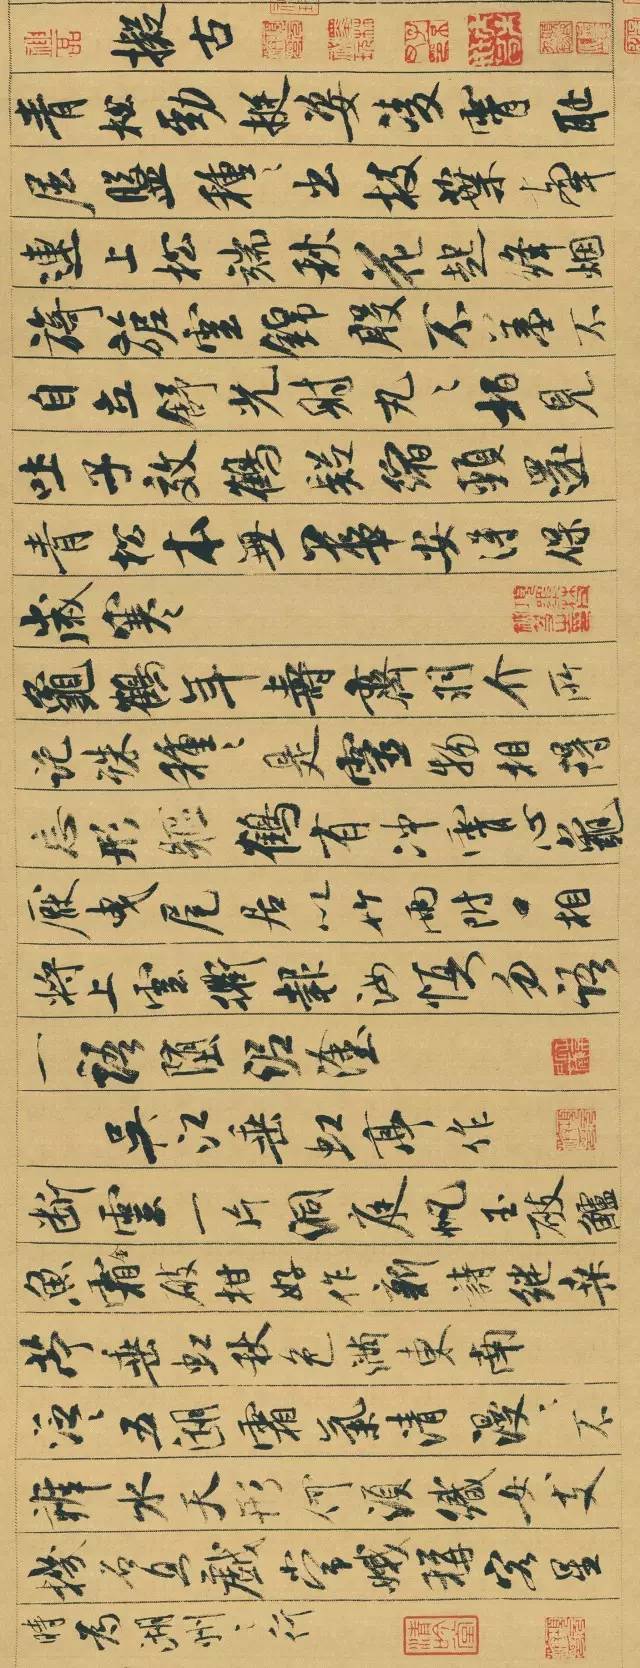 擬古
青松勁挺姿凌霄恥
屈盤種〻出枝葉牽
連上松端秋花起絳烟
旖旎雲錦殷不羞不
自立舒光射丸〻柏見
吐子效鶴疑縮頸還
青松本無華安得保
歲寒
龜鶴年壽齊羽介所
託殊種〻是靈物相得
忘形軀鶴有冲霄心龜
厭曳尾居以竹兩附口相
將上雲衢報汝慎勿語
一語墮泥塗
吳江垂虹亭作
斷雲一片洞庭帆玉破鱸
魚霜金破柑好作新詩繼桑
苧垂虹秋色滿東南
泛〻五湖霜氣清漫〻不
辨水天形何須織女支
機石且戲常娥稱客星
時為湖州之行